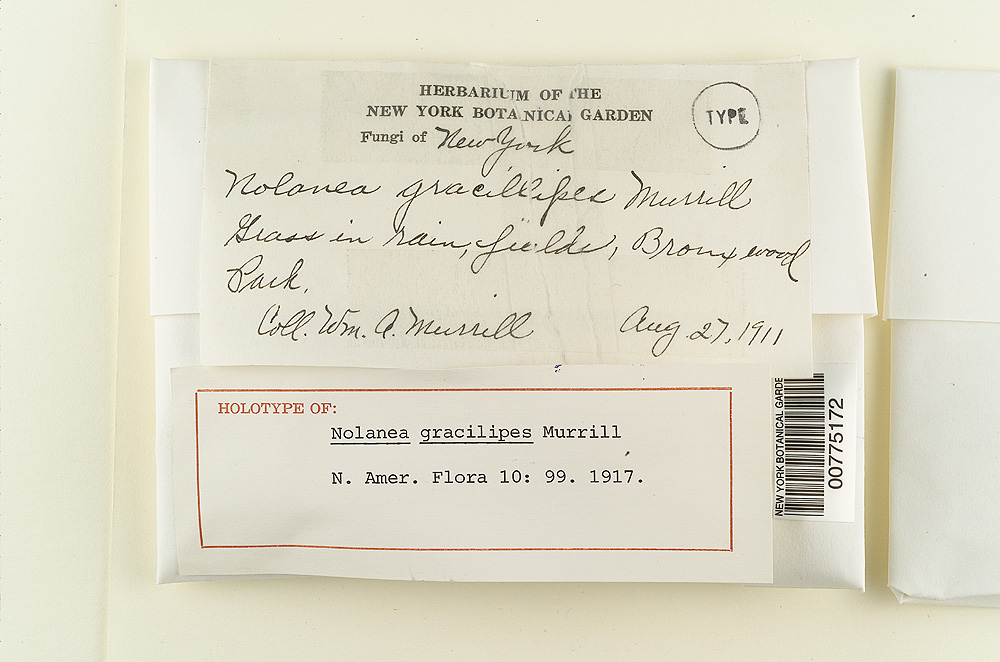 HERBARIUM OF THE
NEW YORK BOTANICAL GARDEN
TYPE
Fungi of New York
Nolanea gracillipes Murrill
Grass in rain, fields, Bronxwood
Park.
Coll. Wm. A. Murrill Aug. 27, 1911
HOLOTYPE OF:
Nolanea gracilipes Murrill
N. Amer. Flora 10: 99. 1917.
NEW YORK BOTANICAL GARDE
00775172